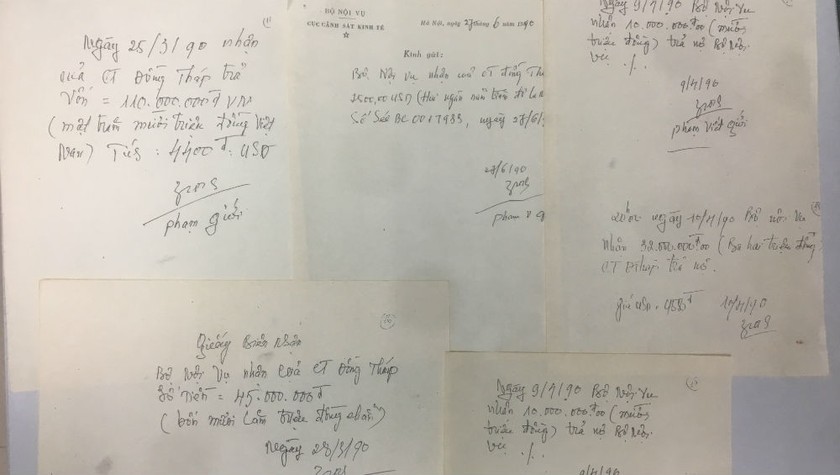 Ngày 25/3/90 nhận
của CT Đồng Tháp trả
Vốn = 110.000.000đ VN
(một trăm mười triệu đồng Việt
Nam) Tức: 4400đ. USD
Phạm Giới
BỘ NỘI VỤ
CỤC CẢNH SÁT KINH TẾ
Hà Nội, ngày 27 tháng 6 năm 1990
Kính gửi:
Bộ Nội Vụ nhận của CT Đồng Th
2500,00 USD (Hai ngàn năm trăm đô la
Số Séc BC 0017933, ngày 27/6/
28/6/90
Phạm V G
Ngày 9/4/90 Bộ Nội Vụ
nhận 10.000.000đ00 (mười
triệu đồng) trả nợ Bộ Nội
Vụ ./.
9/4/90
Phạm Viết Giới
ngày 10/4/90 Bộ Nội Vụ
nhận 32.000.000đ00 (Ba hai triệu đồng
CT Đ Tháp trả nợ.
giá USD = 4525đ 10/4/90
Giấy Biên Nhận
Bộ Nội Vụ nhận của CT Đồng Tháp
Số Tiền = 45.000.000đ
(bốn mươi lăm triệu đồng chẵn)
Ngày 28/3/90
Ngày 9/4/90 Bộ Nội Vụ
nhận 10.000.000đ00 (mười
triệu đồng) trả nợ Bộ Nội
Vụ ./.
9/4/90